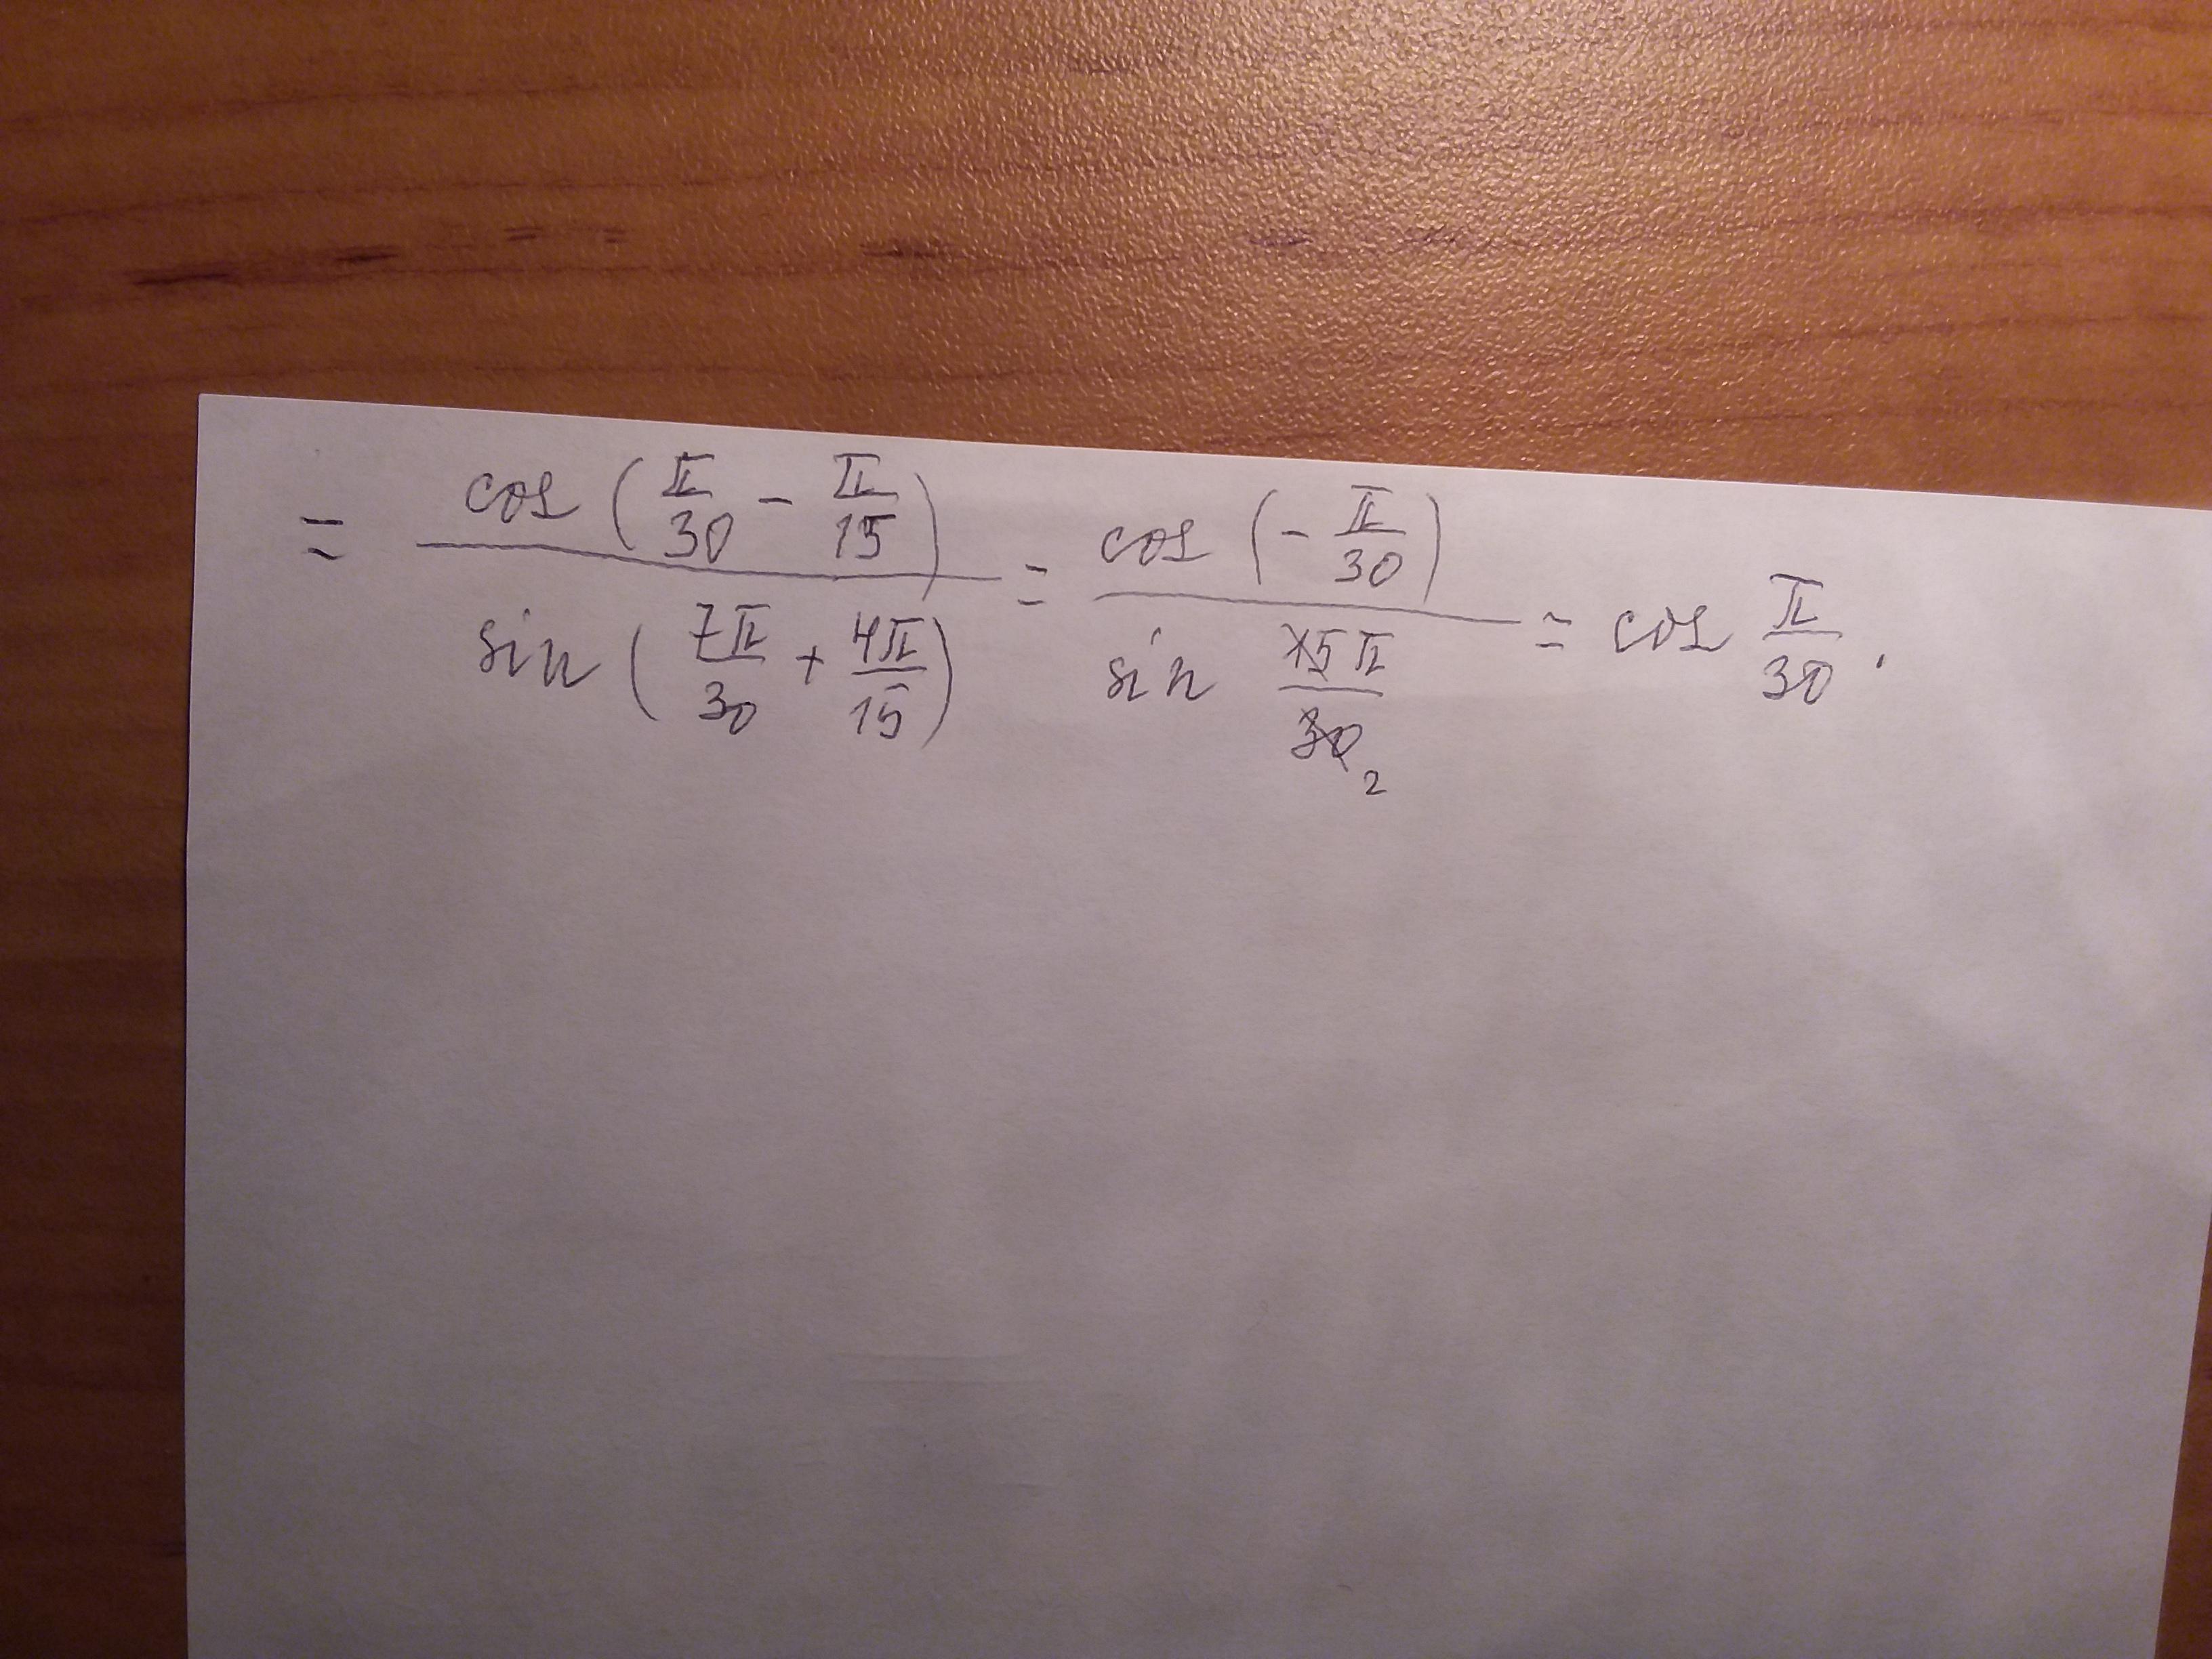 = cos(π/30 − π/15) / sin(7π/30 + 4π/15) = cos(−π/30) / sin 15π/30 2 = cos π/30 .